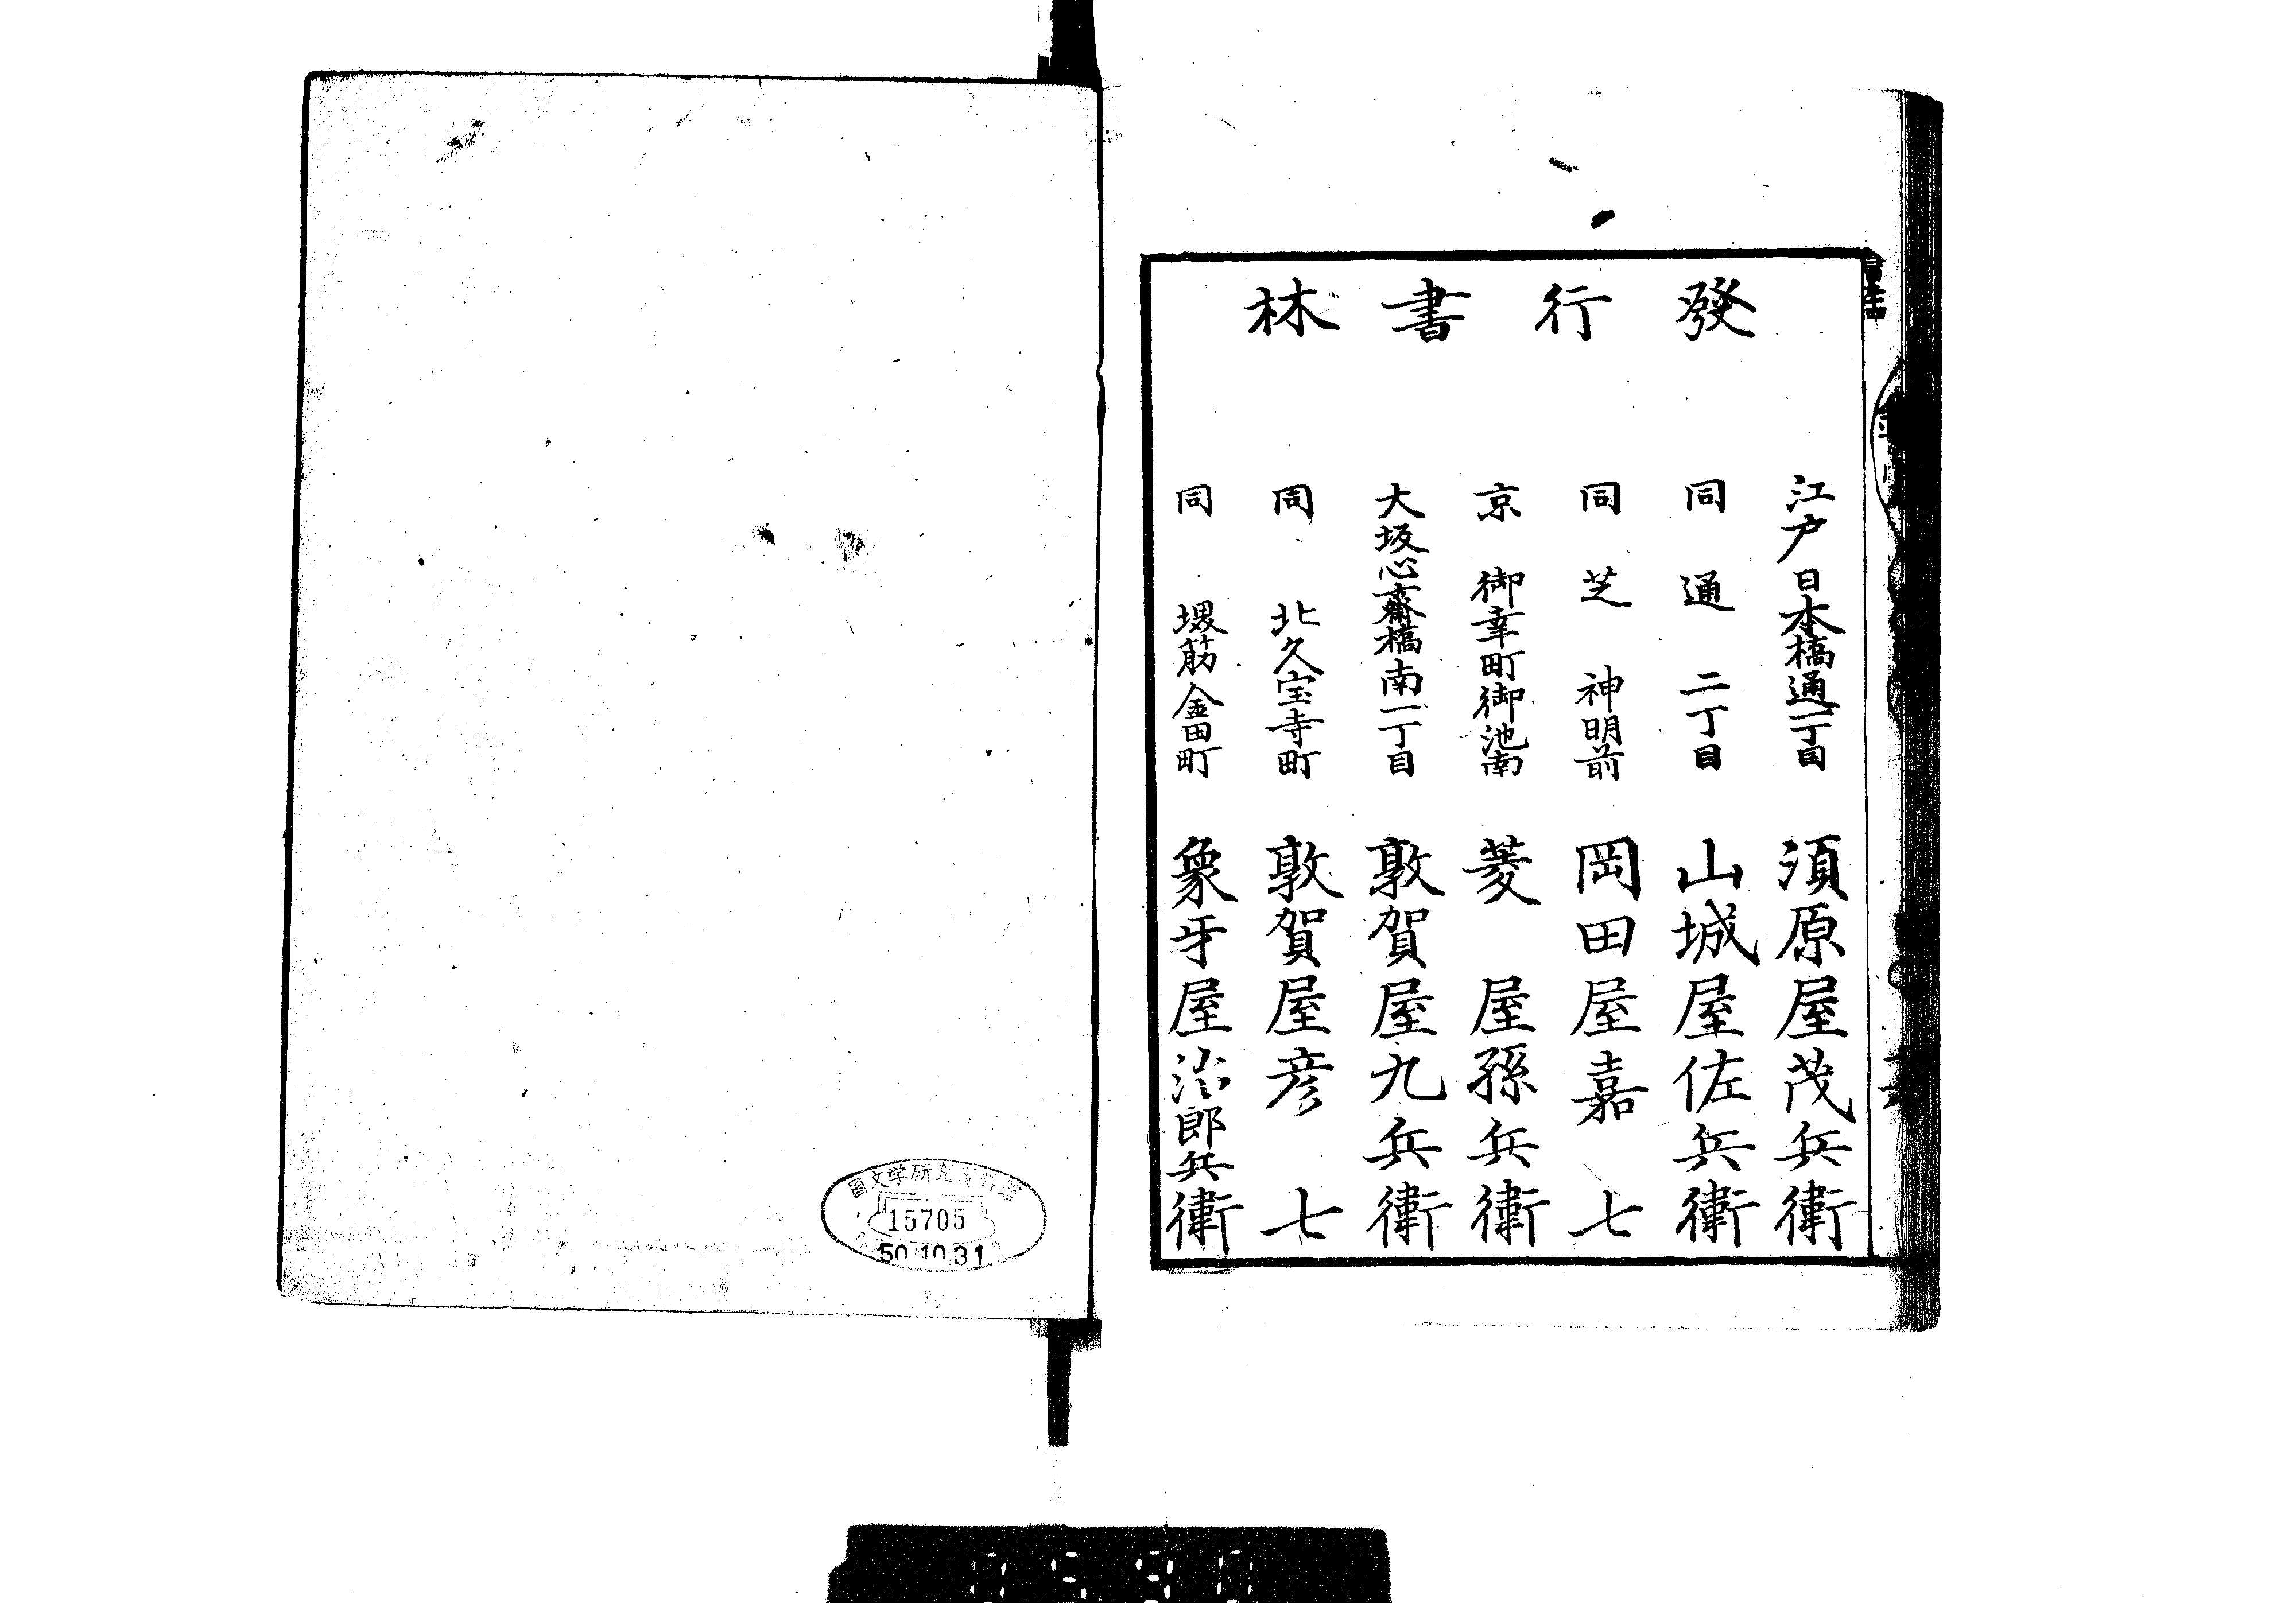 發行書林
江戸日本橋通一丁目 須原屋茂兵衛
同 通 二丁目 山城屋佐兵衛
同 芝 神明前 岡田屋嘉七
京 御幸町御池南 菱屋孫兵衛
大坂心齋橋南一丁目 敦賀屋九兵衛
同 北久宝寺町 敦賀屋彦七
同 堺筋金田町 象牙屋治郎兵衛
15705
50.10.31